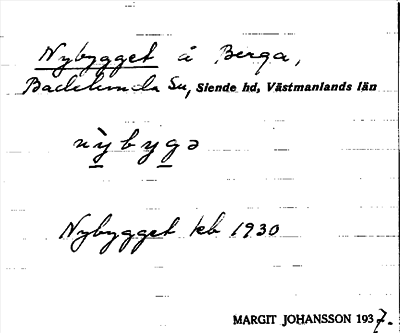 Nybygget å Berga,
Badelunda Sn, Siende hd, Västmanlands län
nỳbygə
Nybygget kb 1930
MARGIT JOHANSSON 1937.